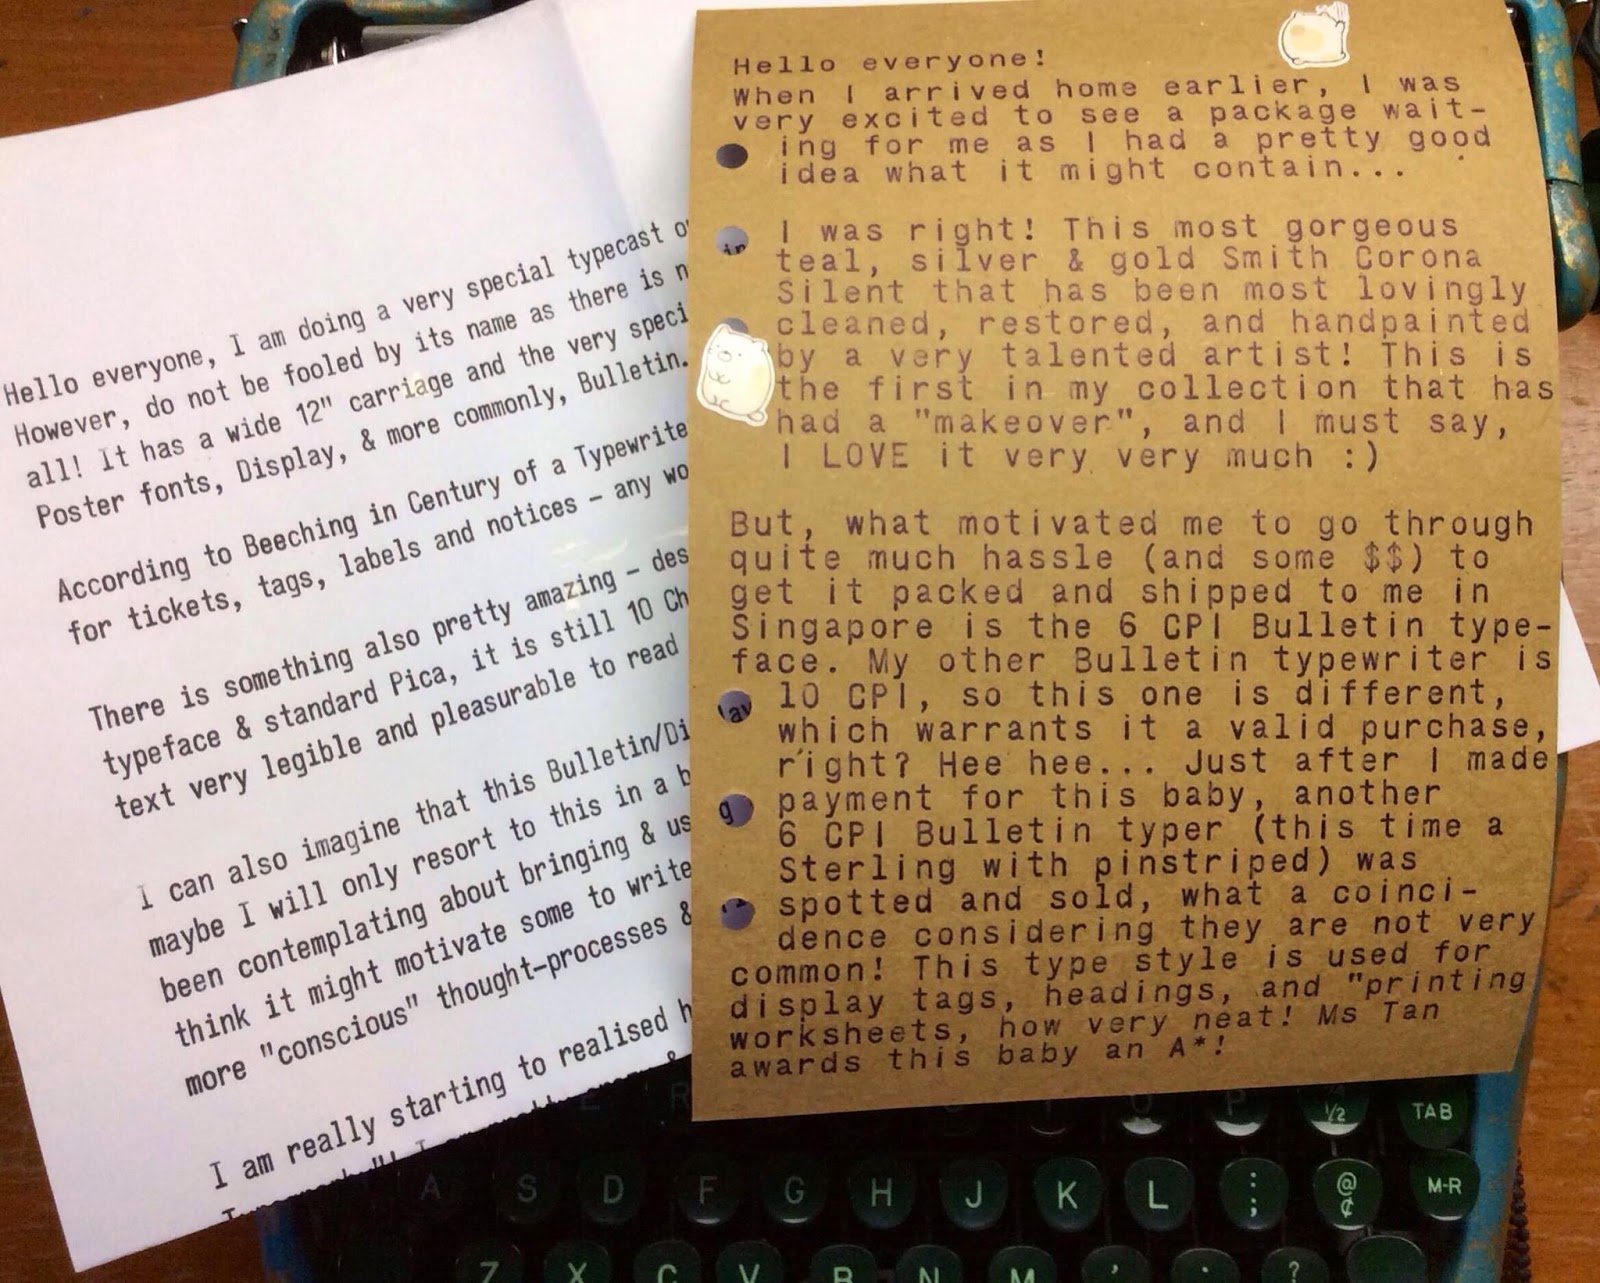 Hello everyone, I am doing a very special typecast
However, do not be fooled by its name as there is
all! It has a wide 12" carriage and the very
Poster fonts, Display, & more commonly, Bulletin.
According to Beeching in Century of a
for tickets, tags, labels and notices - any
There is something also pretty amazing -
typeface & standard Pica, it is still 10
text very legible and pleasurable to read
I can also imagine that this
maybe I will only resort to this in a
been contemplating about bringing &
think it might motivate some to write
more "conscious" thought-processes &
I am really starting to realised
Hello everyone!
When I arrived home earlier, I was
very excited to see a package wait-
ing for me as I had a pretty good
idea what it might contain...
I was right! This most gorgeous
teal, silver & gold Smith Corona
Silent that has been most lovingly
cleaned, restored, and handpainted
by a very talented artist! This is
the first in my collection that has
had a "makeover", and I must say,
I LOVE it very very much :)
But, what motivated me to go through
quite much hassle (and some $$) to
get it packed and shipped to me in
Singapore is the 6 CPI Bulletin type-
face. My other Bulletin typewriter is
10 CPI, so this one is different,
which warrants it a valid purchase,
right? Hee hee... Just after I made
payment for this baby, another
6 CPI Bulletin typer (this time a
Sterling with pinstriped) was
spotted and sold, what a coinci-
dence considering they are not very
common! This type style is used for
display tags, headings, and "printing
worksheets, how very neat! Ms Tan
awards this baby an A*!
O P ½ TAB
A S D F G H J K L : ; @ ¢ M-R
Z X C V B N M , . ?